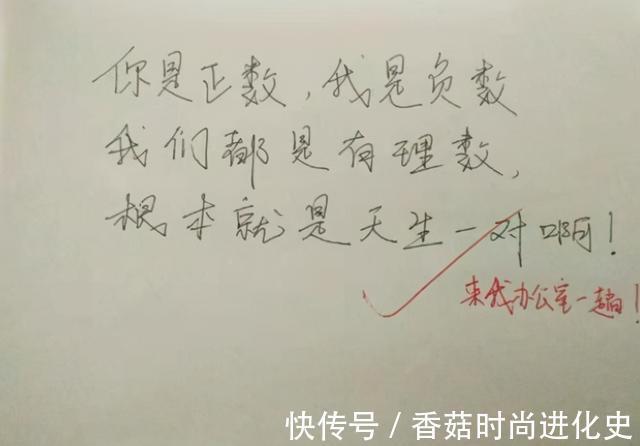 你是正数,我是负数
我们都是有理数,
根本就是天生一对啊!
来我办公室一趟!
快传号 / 香菇时尚进化史